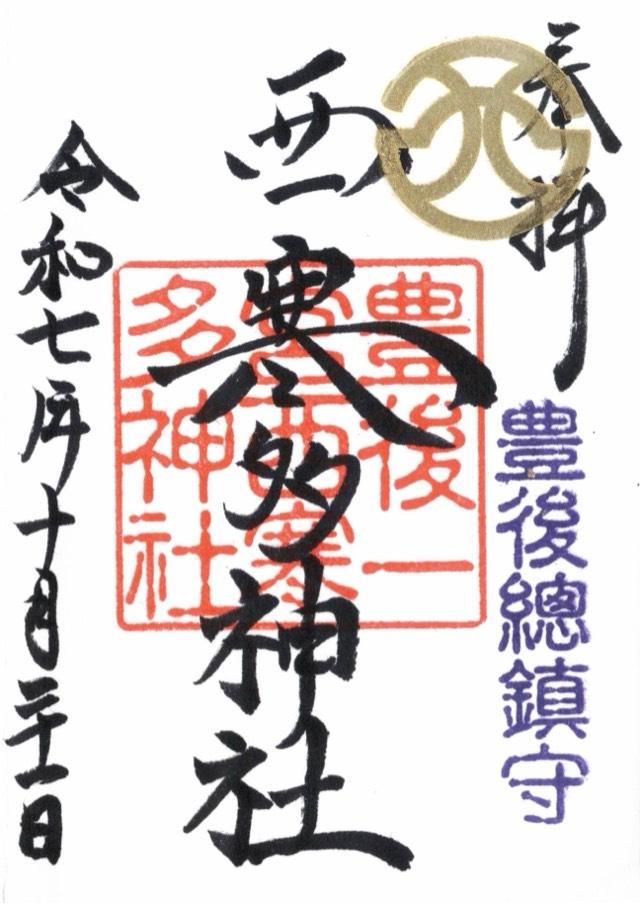 奉拝
豊後總鎮守
西寒多神社
豊後一
宮西寒
多神社
令和七年十月二十一日